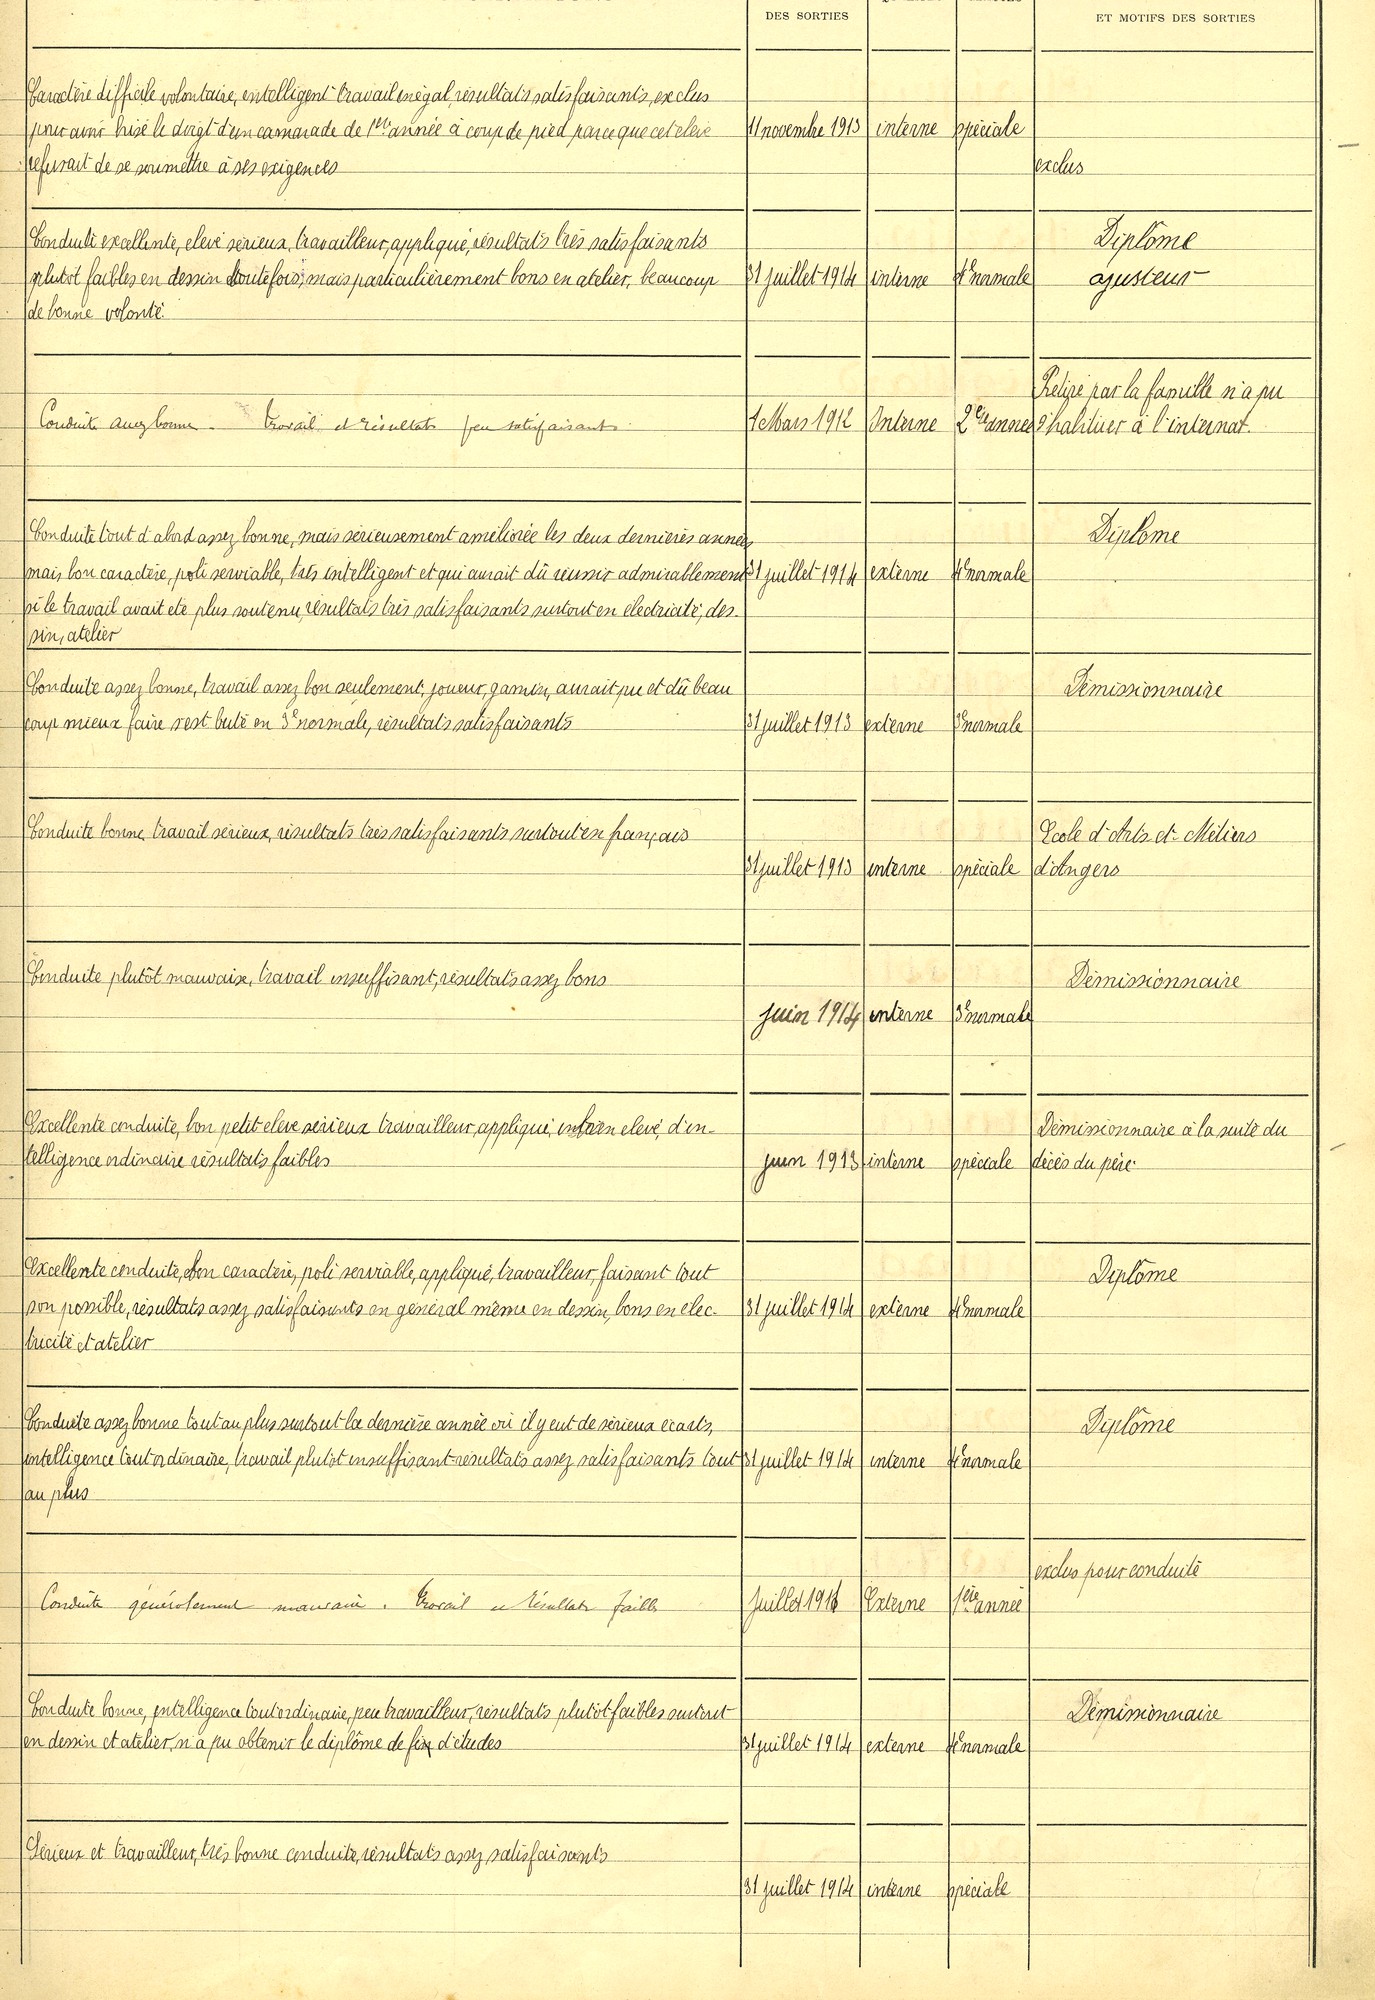 DES SORTIES
ET MOTIFS DES SORTIES
Caractère difficile volontaire, intelligent travail inégal, résultats satisfaisants, exclus
pour avoir brisé le doigt d'un camarade de 1ère année à coup de pied parce que cet élève
refusait de se soumettre à ses exigences
11 novembre 1913 interne spéciale
exclus
Conduite excellente, elevé sérieux, travailleur, appliqué, résultats très satisfaisants
plutot faibles en dessin toutefois, mais particulièrement bons en atelier, beaucoup
de bonne volonté
31 juillet 1914 interne 4e normale
Diplôme
ajusteur
Conduite assez bonne. Travail et résultats peu satisfaisants
1 Mars 1912 Interne 2e année
Retiré par la famille n'a pu
s'habituer à l'internat.
Conduite tout d'abord assez bonne, mais sérieusement améliorée les deux dernières années
mais bon caractère, poli serviable, très intelligent et qui aurait dû réussir admirablement
si le travail avait été plus soutenu, résultats très satisfaisants surtout en électricité, des-
sin, atelier
31 juillet 1914 externe 4e normale
Diplome
Conduite assez bonne, travail assez bon seulement, joueur, gamin, aurait pu et dû beau
coup mieux faire s'est buté en 3e normale, résultats satisfaisants
31 juillet 1913 externe 3e normale
Démissionnaire
Conduite bonne, travail sérieux, résultats très satisfaisants surtout en français
31 juillet 1913 interne spéciale
Ecole d'Arts et Métiers
d'Angers
Conduite plutôt mauvaise, travail insuffisant, résultats assez bons
juin 1914 interne 3e normale
Démissionnaire
Excellente conduite, bon petit eleve sérieux travailleur, appliqué, bien elevé, d'in-
telligence ordinaire résultats faibles
juin 1913 interne spéciale
Démissionnaire à la suite du
décès du père
Excellente conduite, bon caractère, poli serviable, appliqué, travailleur, faisant tout
son possible, résultats assez satisfaisants en général même en dessin, bons en élec-
tricité et atelier
31 juillet 1914 externe 4e normale
Diplôme
Conduite assez bonne tout au plus surtout la dernière année où il y eut de sérieux écarts,
intelligence tout ordinaire, travail plutôt insuffisant résultats assez satisfaisants tout
au plus
31 juillet 1914 interne 4e normale
Diplôme
Conduite généralement mauvaise. Travail et Résultats faibles
Juillet Externe 1ère année
exclus pour conduite
Conduite bonne, intelligence tout ordinaire, peu travailleur, résultats plutôt faibles surtout
en dessin et atelier, n'a pu obtenir le diplôme de fin d'études
31 juillet 1914 externe 4e normale
Démissionnaire
Sérieux et travailleur, très bonne conduite, résultats assez satisfaisants
31 juillet 1914 interne spéciale